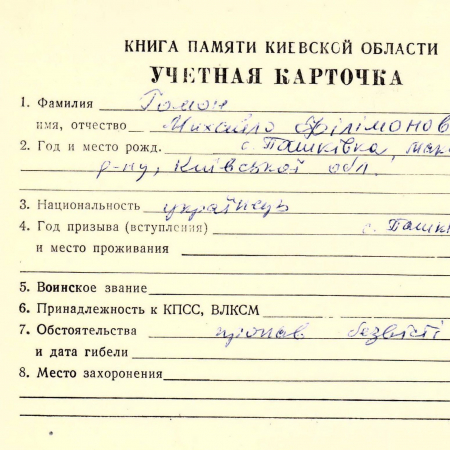 КНИГА ПАМЯТИ КИЕВСКОЙ ОБЛАСТИ
УЧЕТНАЯ КАРТОЧКА
1. Фамилия Гомон
имя, отчество Михайло Філімонов
2. Год и место рожд. с. Пашківка, мак
р-ну, Київської обл.
3. Национальность українець
4. Год призыва (вступления) с. Пашкі
и место проживания
5. Воинское звание
6. Принадлежность к КПСС, ВЛКСМ
7. Обстоятельства пропав безвісті
и дата гибели
8. Место захоронения